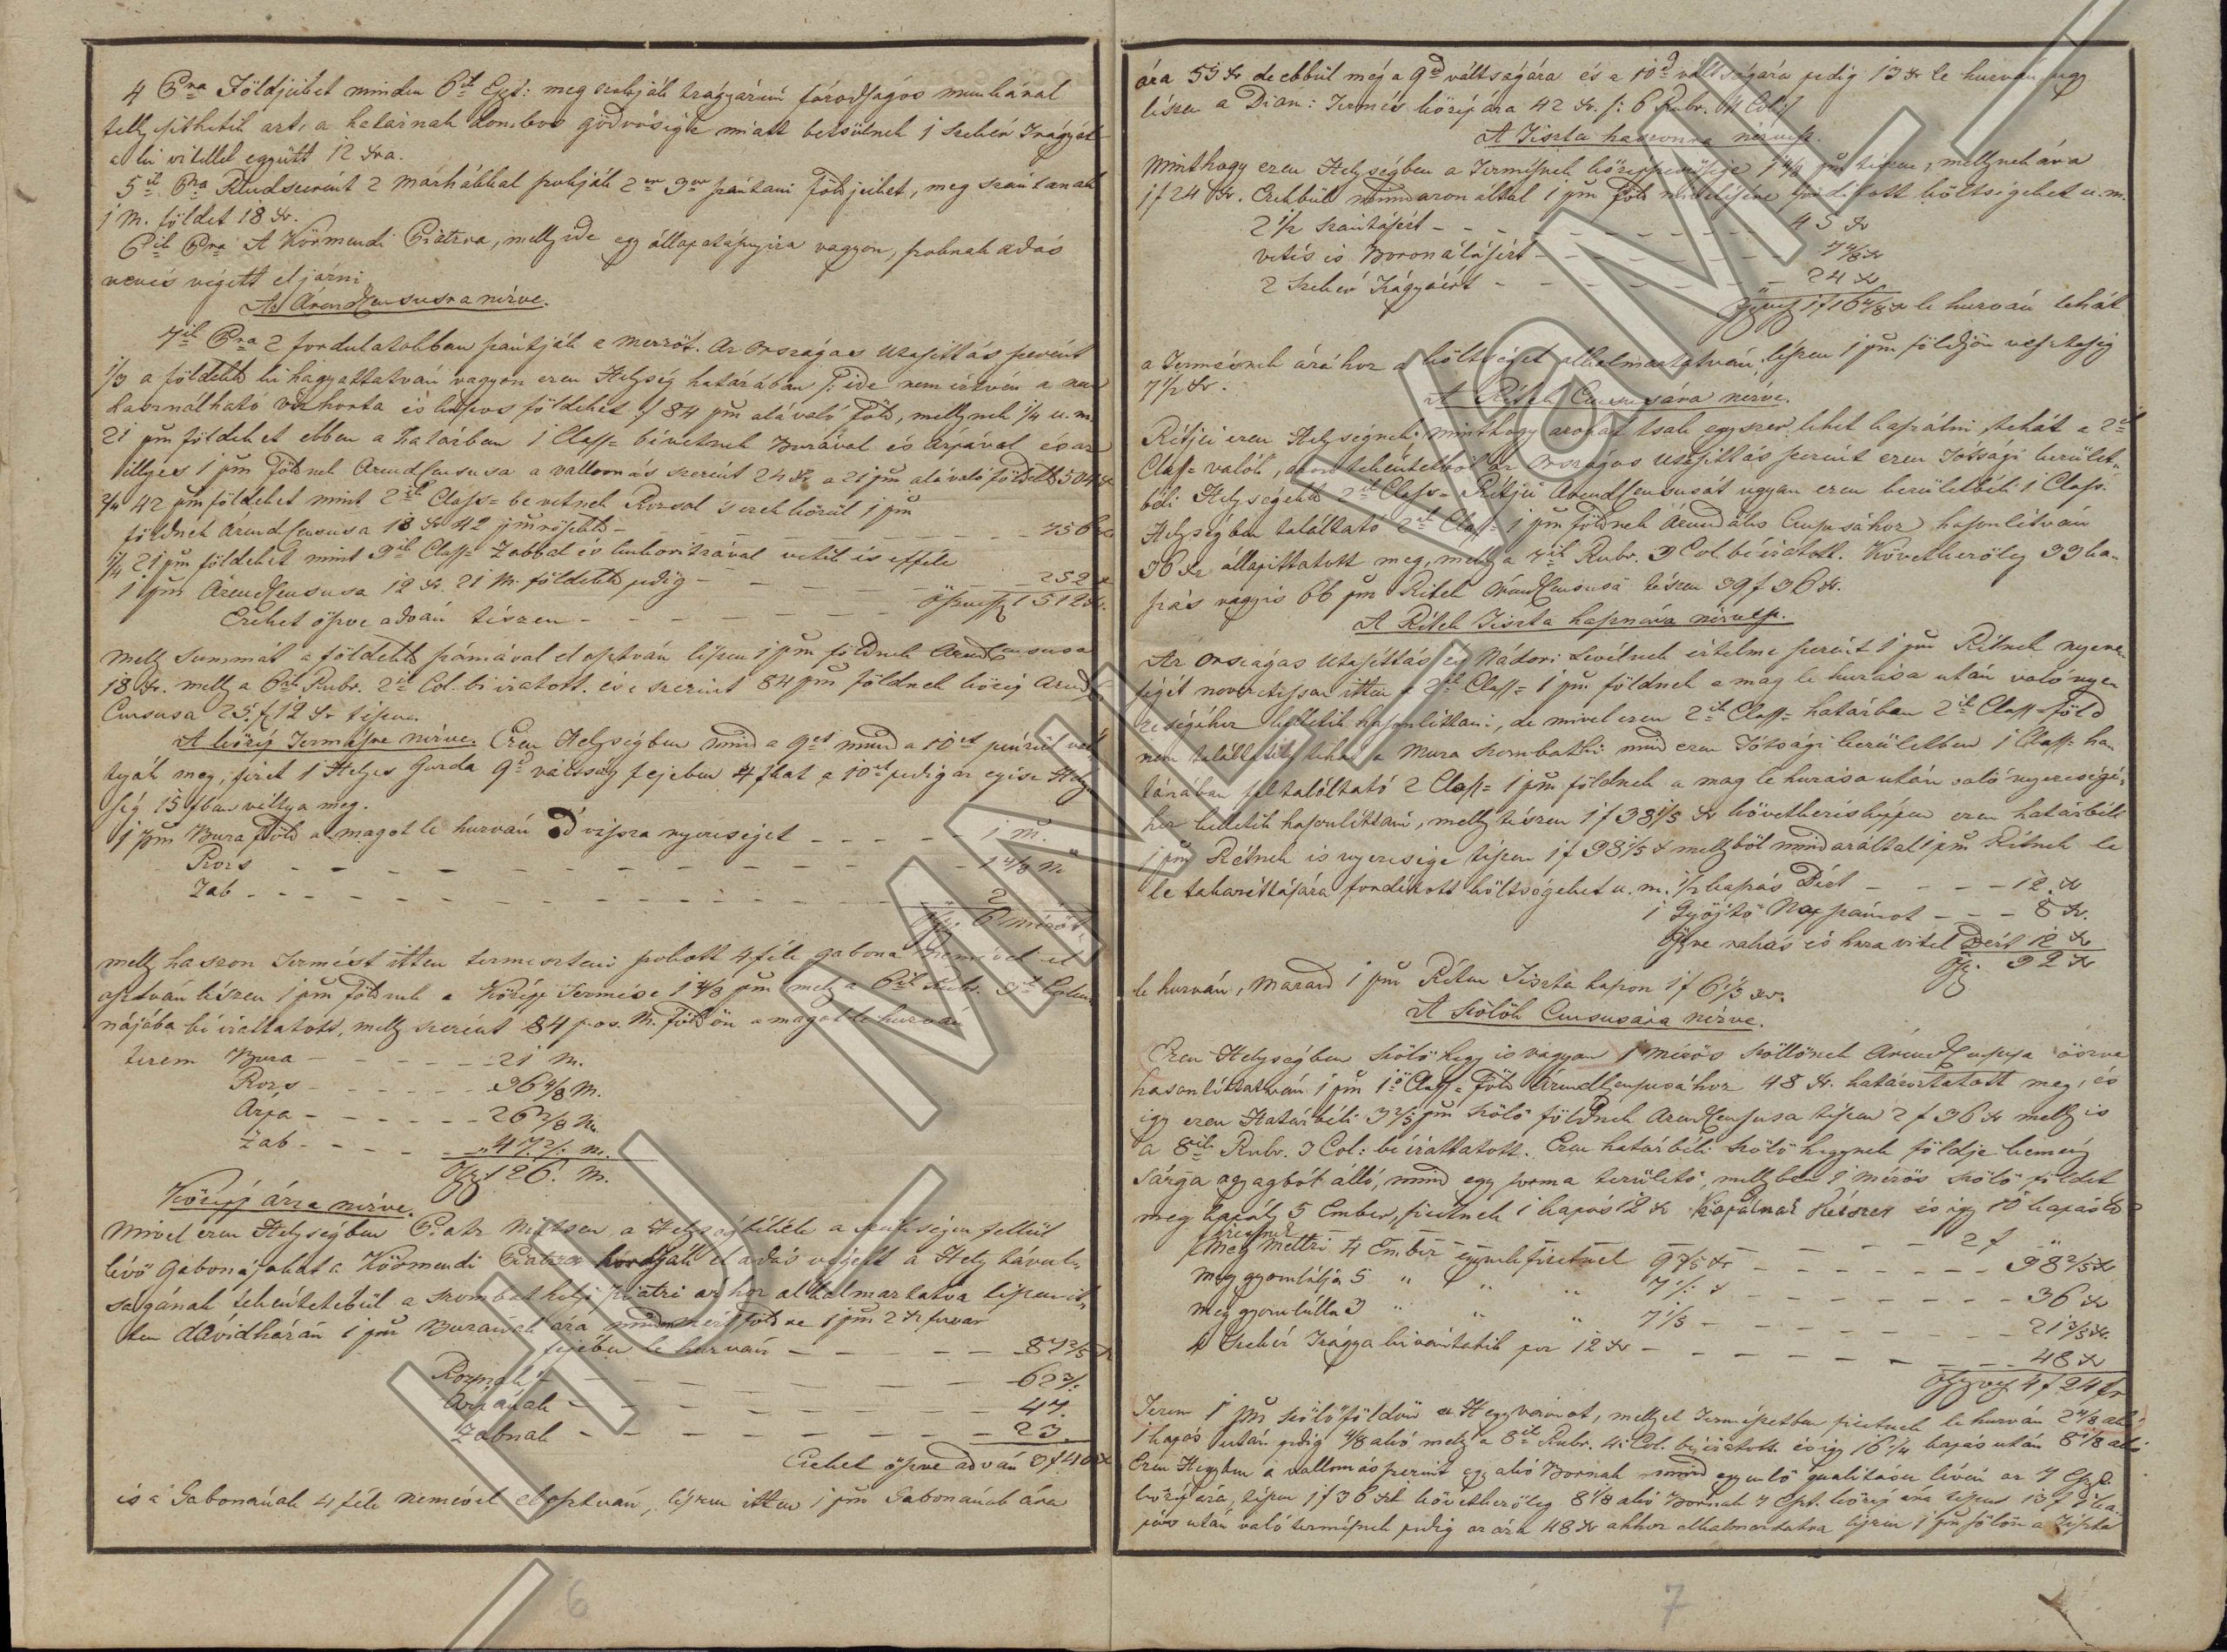 4 Pra Földjeiket minden 6ik Eszt: meg szokják trágyázni fáradságos munkával
tellyesíthetik azt, a határnak dombos gödrössége miatt betsülnek 1 szekér Trágyát
a ki vitellel együtt 12 xra.
5ik Pra Rendszerént 2 Marhákkal szokják 2or 3or szántani földjeiket, meg szántanak
1 M. földet 18 xr.
6ik Pra A Körmendi Piatzra, melly ide egy állapatásnyira vagyon, szoknak adás
vevés végett el járni
Az Árend Censusra nézve.
7ik Pra 2 fordulatokban szántják a mezzöt. Az Országos Utasittás szerént
1/3 a földekbül ki hagyattatván vagyon ezen Helység határában /: ide nem értvén a nem
használható viz horta és kopros földeket :/ 84 pm alá való föld, mellynek 1/4 u. m.
21 pm földeket ebben a Határban 1 Class= bévetnek Buzával és árpával és az
illyes 1 pm földnek ArendCensusa a vallomás szerént 24 xr a 21 pm alá való földekbül 504 xr
2/4 42 pm földeket mint 2ik Class= be vetnek Rozsal s ezek közül 1 pm
földnek ArendCensusa 18 xr 42 pm - - - 756 xr
1/4 21 pm földeket mint 3ik Class= Zabbal és kukoritzával vetik és efféle
1 pm ÁrendCensusa 12 xr. 21 M. földekbül pedig - - - 252 x
Ezeket öszve adván tészen - - - Öszvess. 1512 xr.
melly Summát a földekbül számával el osztván lészen 1 pm földnek ArendCensusa
18 xr. melly a 6ik Rubr. 2ik Col. bé iratott. és e szerint 84 pm földnek közép Arend
Censusa 25 f 12 xr tészen.
A közép Termésre nézve. Ezen Helységben mind a 9et mind a 10et pénzül vált
tyák meg, fizet 1 Helyes Gazda 9d váltság fejében 4 fkat a 10et pedig az egész Hely
ség 15 fban váltya meg.
1 pm Buza föld a magot le huzván ád viszsza nyereséget - - - 1 m.
Rozs - - - 1 4/8 m
Zab - - - 2 "
Öszv. 6 mérőt
melly haszon Termést itten termeszteni szokott 4 féle gabona nemével el
osztván lészen 1 pm földnek a Közép Termése 1 4/8 pm melly a 6ik Rubr. 3ik Colum
nájába bé irattatott, melly szerént 84 pos. M. földön a magot le huzván
terem Buza - - - 21 M.
Rozs - - - 36 4/8 M.
Árpa - - - 26 2/8 M.
Zab - - -
Öszv. 126. M.
Közép árra nézve.
Mivel ezen Helységben Piatz nintsen a Helységbéliek a szükségen fellül
lévő Gabonájokat a Körmendi Piatzra hordják el adás végett a Hely távul
ságának tekéntetebül a szombathelyi piatzi árhoz alkalmaztatva lészen it
ten dávidházán 1 pm Buzának ára 1 pm 2 xr fuvar
fejében le huzván - - - 87 2/5 x
Rozsnak - - - 62
Árpának - - - 47.
Zabnak - - - 23.
Ezeket öszve adván 3 f 40 xr
és a Gabonának 4 féle nemével elosztván, lészen itten 1 pm Gabonának ára
6
ára 55 xr de ebbül még a 9ed váltságára és a 10ed váltságára pedig 13 xr le huzván ugy
lészen a Divin: Termés közép ára 42 xr. /: 6 Rubr. 4 Col :/
A Tiszta haszonra nézvest.
Minthogy ezen Helységben a Termésnek középszerüsége 1 4/8 pm tészen, mellynek ára
1 f 24 xr. Ezekbül mindazonáltal 1 pm föld mivelésére fordittott költségeket u. m.
2 1/2 szántásért - - - 45 xr
vetés és Boronálásért - - - 7 4/8 xr
2 szekér Trágyáért - - - 24 xr
Öszvess. 1 f 16 4/8 xr le huzván tehát
a Termésnek árához a költséget alkalmaztatván, lészen 1 pm földjön veszteség
7 1/2 xr.
A Rétek Censusára nézve.
Rétjei ezen Helységnek minthogy azokat tsak egyszer lehet kaszálni tehát a 2ik
Class= valók, azon tekéntetből az Országos Utasittás szerént ezen Tótsági kerület
béli Helységekbül 2ik Class= Rétjei ArendCensusát ugyan ezen kerületbéli 1 Class.
Helységben találtató 2ik Class= 1 pm földnek Árendális Censusához hasonlitván
36 xr állapittatott meg, melly a 7ik Rubr. 3 Col. bé iratott. Következöleg 33 ka
szás vagyis 66 pm Rétek ÁrendCensusa tészen 39 f 36 xr.
A Rétek Tiszta hasznára nézvest.
Az Országos Utasittás és Nádori Levélnek értelme szerént 1 pm Rétnek nyere
ségét nevezetessen itten a 2ik Class= 1 pm földnek a mag le huzása után való nyer
eségéhez kelletik hasonlittani, de mivel ezen 2ik Class= határban 2ik Class= föld
nem találtatik tehát a Mura szombathi mind ezen Tótsági kerületben 1 Class= ha
tárában feltaláltató 2 Class= 1 pm földnek a mag le huzása után való nyereségé
hez kelletik hasonlittani, melly tészen 1 f 38 1/5 xr következésképpen ezen határbéli
1 pm Rétnek is nyeresége tészen 1 f 38 1/5 x mellyböl mindazáltal 1 pm Rétnek le
le takarittására forditott költségeket u. m. 1/2 kaszás Bért - - - 12 xr
1 Gyöjtö Napszámot - - - 8 xr.
Öszve rakás és haza vitel Bért 12 xr
Öszv. 32 xr
le huzván, marad 1 pm Réten Tiszta haszon 1 f 6 1/5 xr.
A Szölök Censusára nézve.
Ezen Helységben szölö hegy is vagyon 1 mérös szöllönek ÁrendCensusa öszve
hasonlittatván 1 pm 1ö Class= föld ArendCensusához 48 xr. határoztatott meg, és
igy ezen Határbéli 3 2/8 pm szölö földnek ArendCensusa tészen 2 f 36 xr melly is
a 8ik Rubr. 3 Col: bé irattatott. Ezen határbéli szölö hegynek földje kemény
sárga agyagból álló, mind egy forma területö, mellyben 1 mérös szölö földet
meg kapál 5 Ember, fizetnek 1 kapás 12 xr kapálnak kétszer és igy 10 kapástol
2 f "
Meg mettzi 4 Ember egynek fizetnek 9 3/5 xr - - - 38 2/5 xr
meg gyomlálja 5 " " " 7 1/5 x - - - 36 xr
meg gyomlálla 3 " " " 7 1/5 - - - 21 3/5 xr.
4 Szekér Trágya kivántatik per 12 xr - - - 48 xr
Öszvess. 4 f 24 xr
Terem 1 pm szölöföldön a Hegyvámot, mellyet Természetben fizetnek le huzván 2 4/8 akó
1 kapás után pedig 4/8 akó melly a 8ik Rubr. 4. Col. bé iratott és igy 16 1/4 kapás után 8 1/8 akó
Ezen Hegyben a vallomás szerint egy akó Bornak mind egyenlö qualitásu lévén az 7 Eszt.
közép ára, tészen 1 f 36 xr következöleg 8 1/8 akó Bornak 7 Eszt. közép ára tészen 13 f 1 ka
pás után való termésnek pedig az ára 48 xr ahhoz alkalmaztatva lészen 1 pm szölön a Tiszta
7
HU MNL VaML